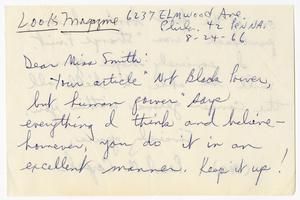 Look Magazine 6237 Elmwood Ave.
Phila. 42 Penna.
8-24-66
Dear Miss Smith:
Your article "Not Black Power,
but human power" says
everything I think and believe-
however, you do it in an
excellent manner. Keep it up!